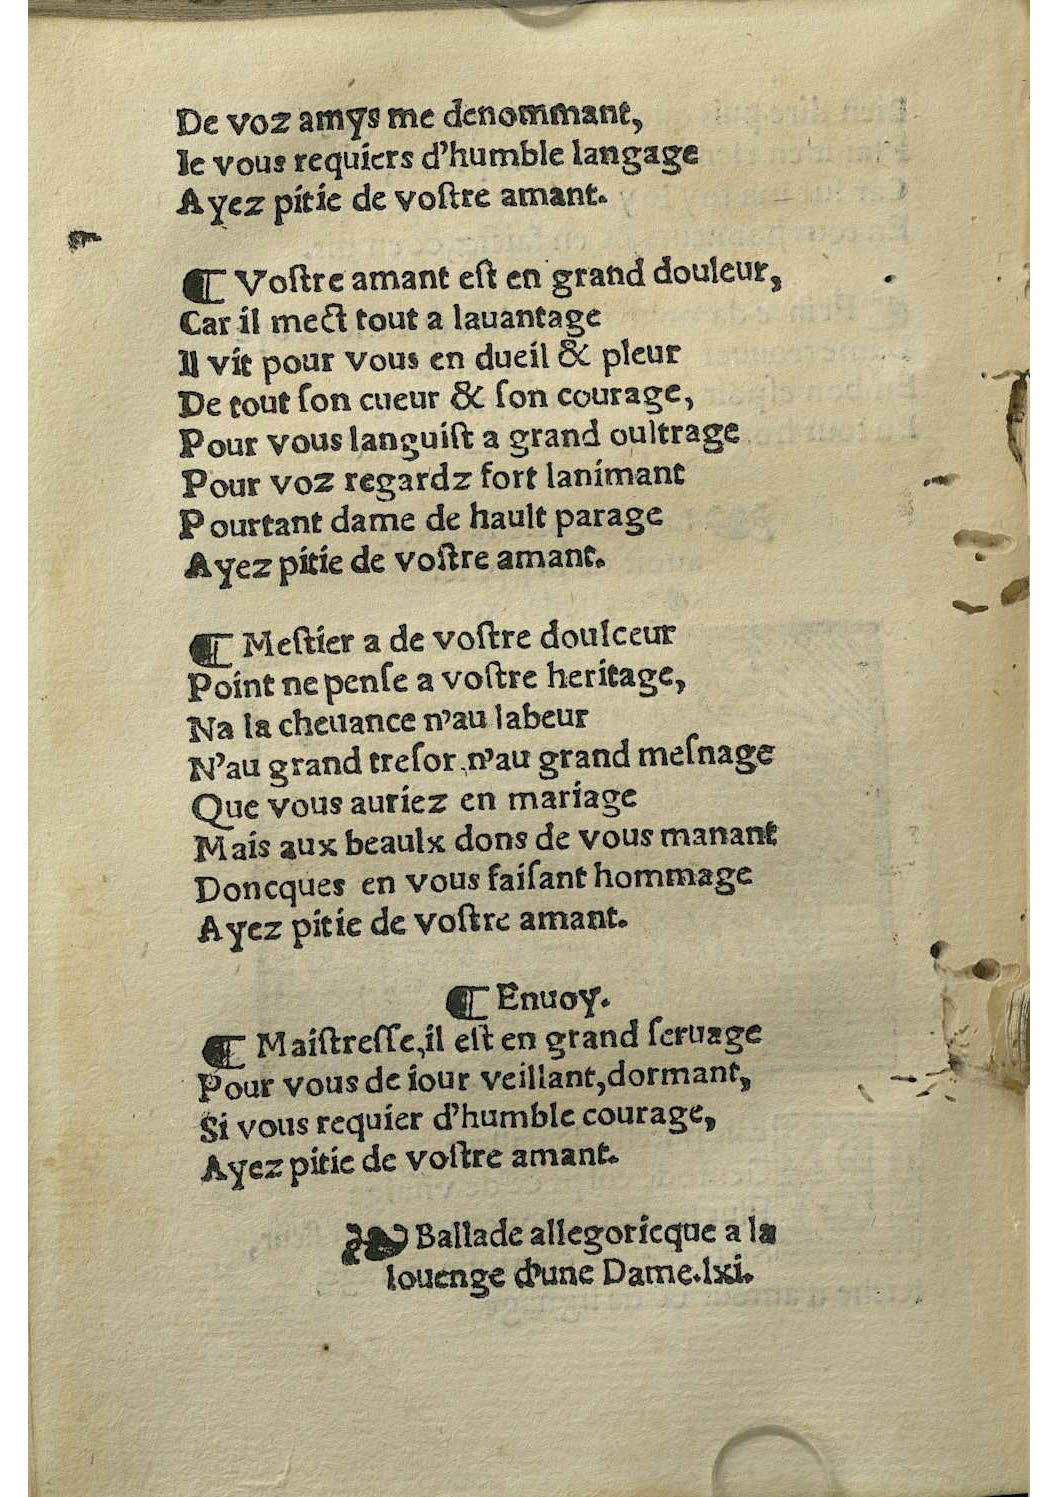 De voz amys me denommant,
Ie vous requiers d'humble langage
Ayez pitie de voſtre amant.
¶ Voſtre amant eſt en grand douleur,
Car il mect tout a lauantage
Il vit pour vous en dueil & pleur
De tout ſon cueur & ſon courage,
Pour vous languiſt a grand oultrage
Pour voz regardz fort lanimant
Pourtant dame de hault parage
Ayez pitie de voſtre amant.
¶ Meſtier a de voſtre doulceur
Point ne penſe a voſtre heritage,
Na la cheuance n'au labeur
N'au grand treſor n'au grand meſnage
Que vous auriez en mariage
Mais aux beaulx dons de vous manant
Doncques en vous faiſant hommage
Ayez pitie de voſtre amant.
¶ Enuoy.
¶ Maiſtreſſe, il eſt en grand ſeruage
Pour vous de iour veillant, dormant,
Si vous requier d'humble courage,
Ayez pitie de voſtre amant.
❧ Ballade allegoricque a la
louenge d'une Dame. lxi.